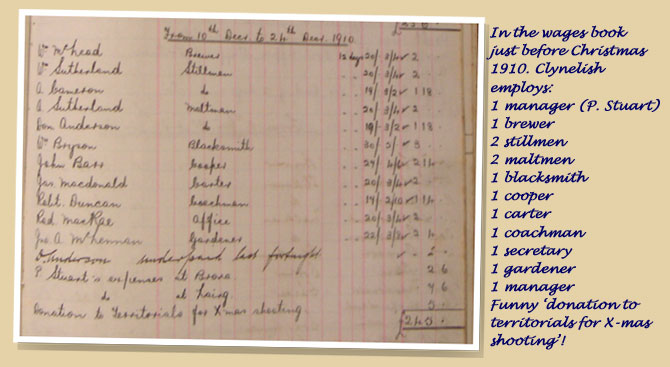 From 10th Decr. to 24th Decr. 1910.
Wm McLeod Brewer 12 days 20/- 3/4 2
Wm Sutherland Stillman 20/- 3/4 2
A Cameron do 19/- 3/2 1 18
A Sutherland Maltman 20/- 3/4 2
Don Anderson do 19/- 3/2 1 18
Wm Bryson Blacksmith 30/- 5/- 3
John Bass Cooper 27/- 4/6 2 14
Jas. Macdonald Carter 20/- 3/4 2
Robt. Duncan Coachman 1 14
Rod. MacRae Office 20/- 3/4 2
Jno. A. McLennan Gardener 22/- 2 4
D. Anderson underpaid last fortnight 2
P Stuart's expenses at Brora 2 6
do at Lairg 4 6
Donation to Territorials for X'mas shooting 5
In the wages book
just before Christmas
1910. Clynelish
employs:
1 manager (P. Stuart)
1 brewer
2 stillmen
2 maltmen
1 blacksmith
1 cooper
1 carter
1 coachman
1 secretary
1 gardener
1 manager
Funny 'donation to
territorials for X-mas
shooting'!